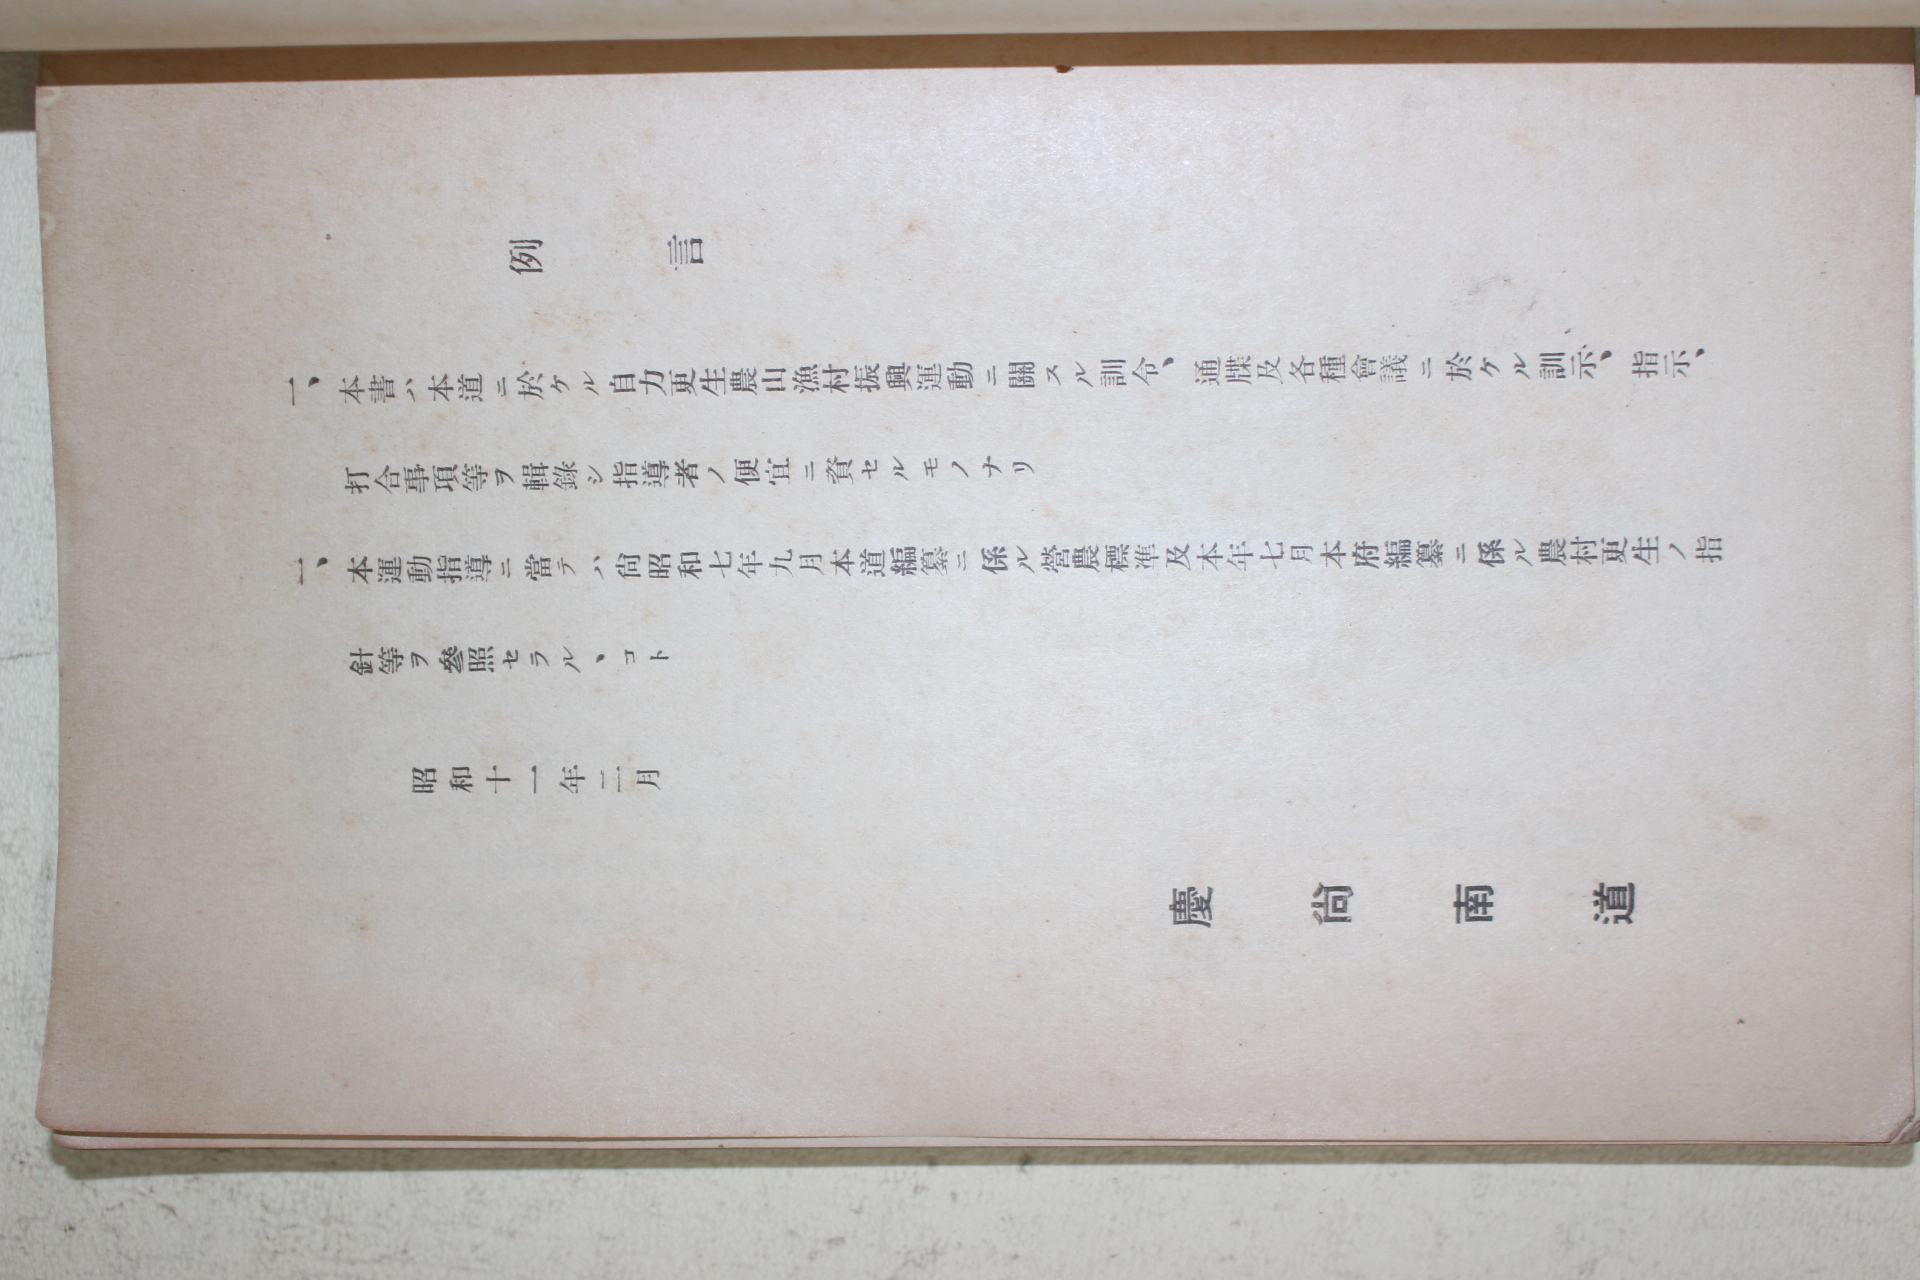 例言
一、本書ハ本道ニ於ケル自力更生農山漁村振興運動ニ關スル訓令、通牒及各種會議ニ於ケル訓示、指示、
打合事項等ヲ輯錄シ指導者ノ便宜ニ資セルモノナリ
一、本運動指導ニ當テハ尙昭和七年九月本道編纂ニ係ル營農標準及本年七月本府編纂ニ係ル農村更生ノ指
針等ヲ參照セラルヽコト
昭和十一年二月
慶尙南道